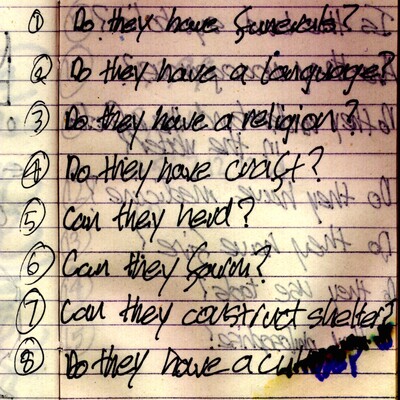 ① Do they have funerals?
② Do they have a language?
③ Do they have a religion?
④ Do they have craft?
⑤ Can they herd?
⑥ Can they farm?
⑦ Can they construct shelter?
⑧ Do they have a